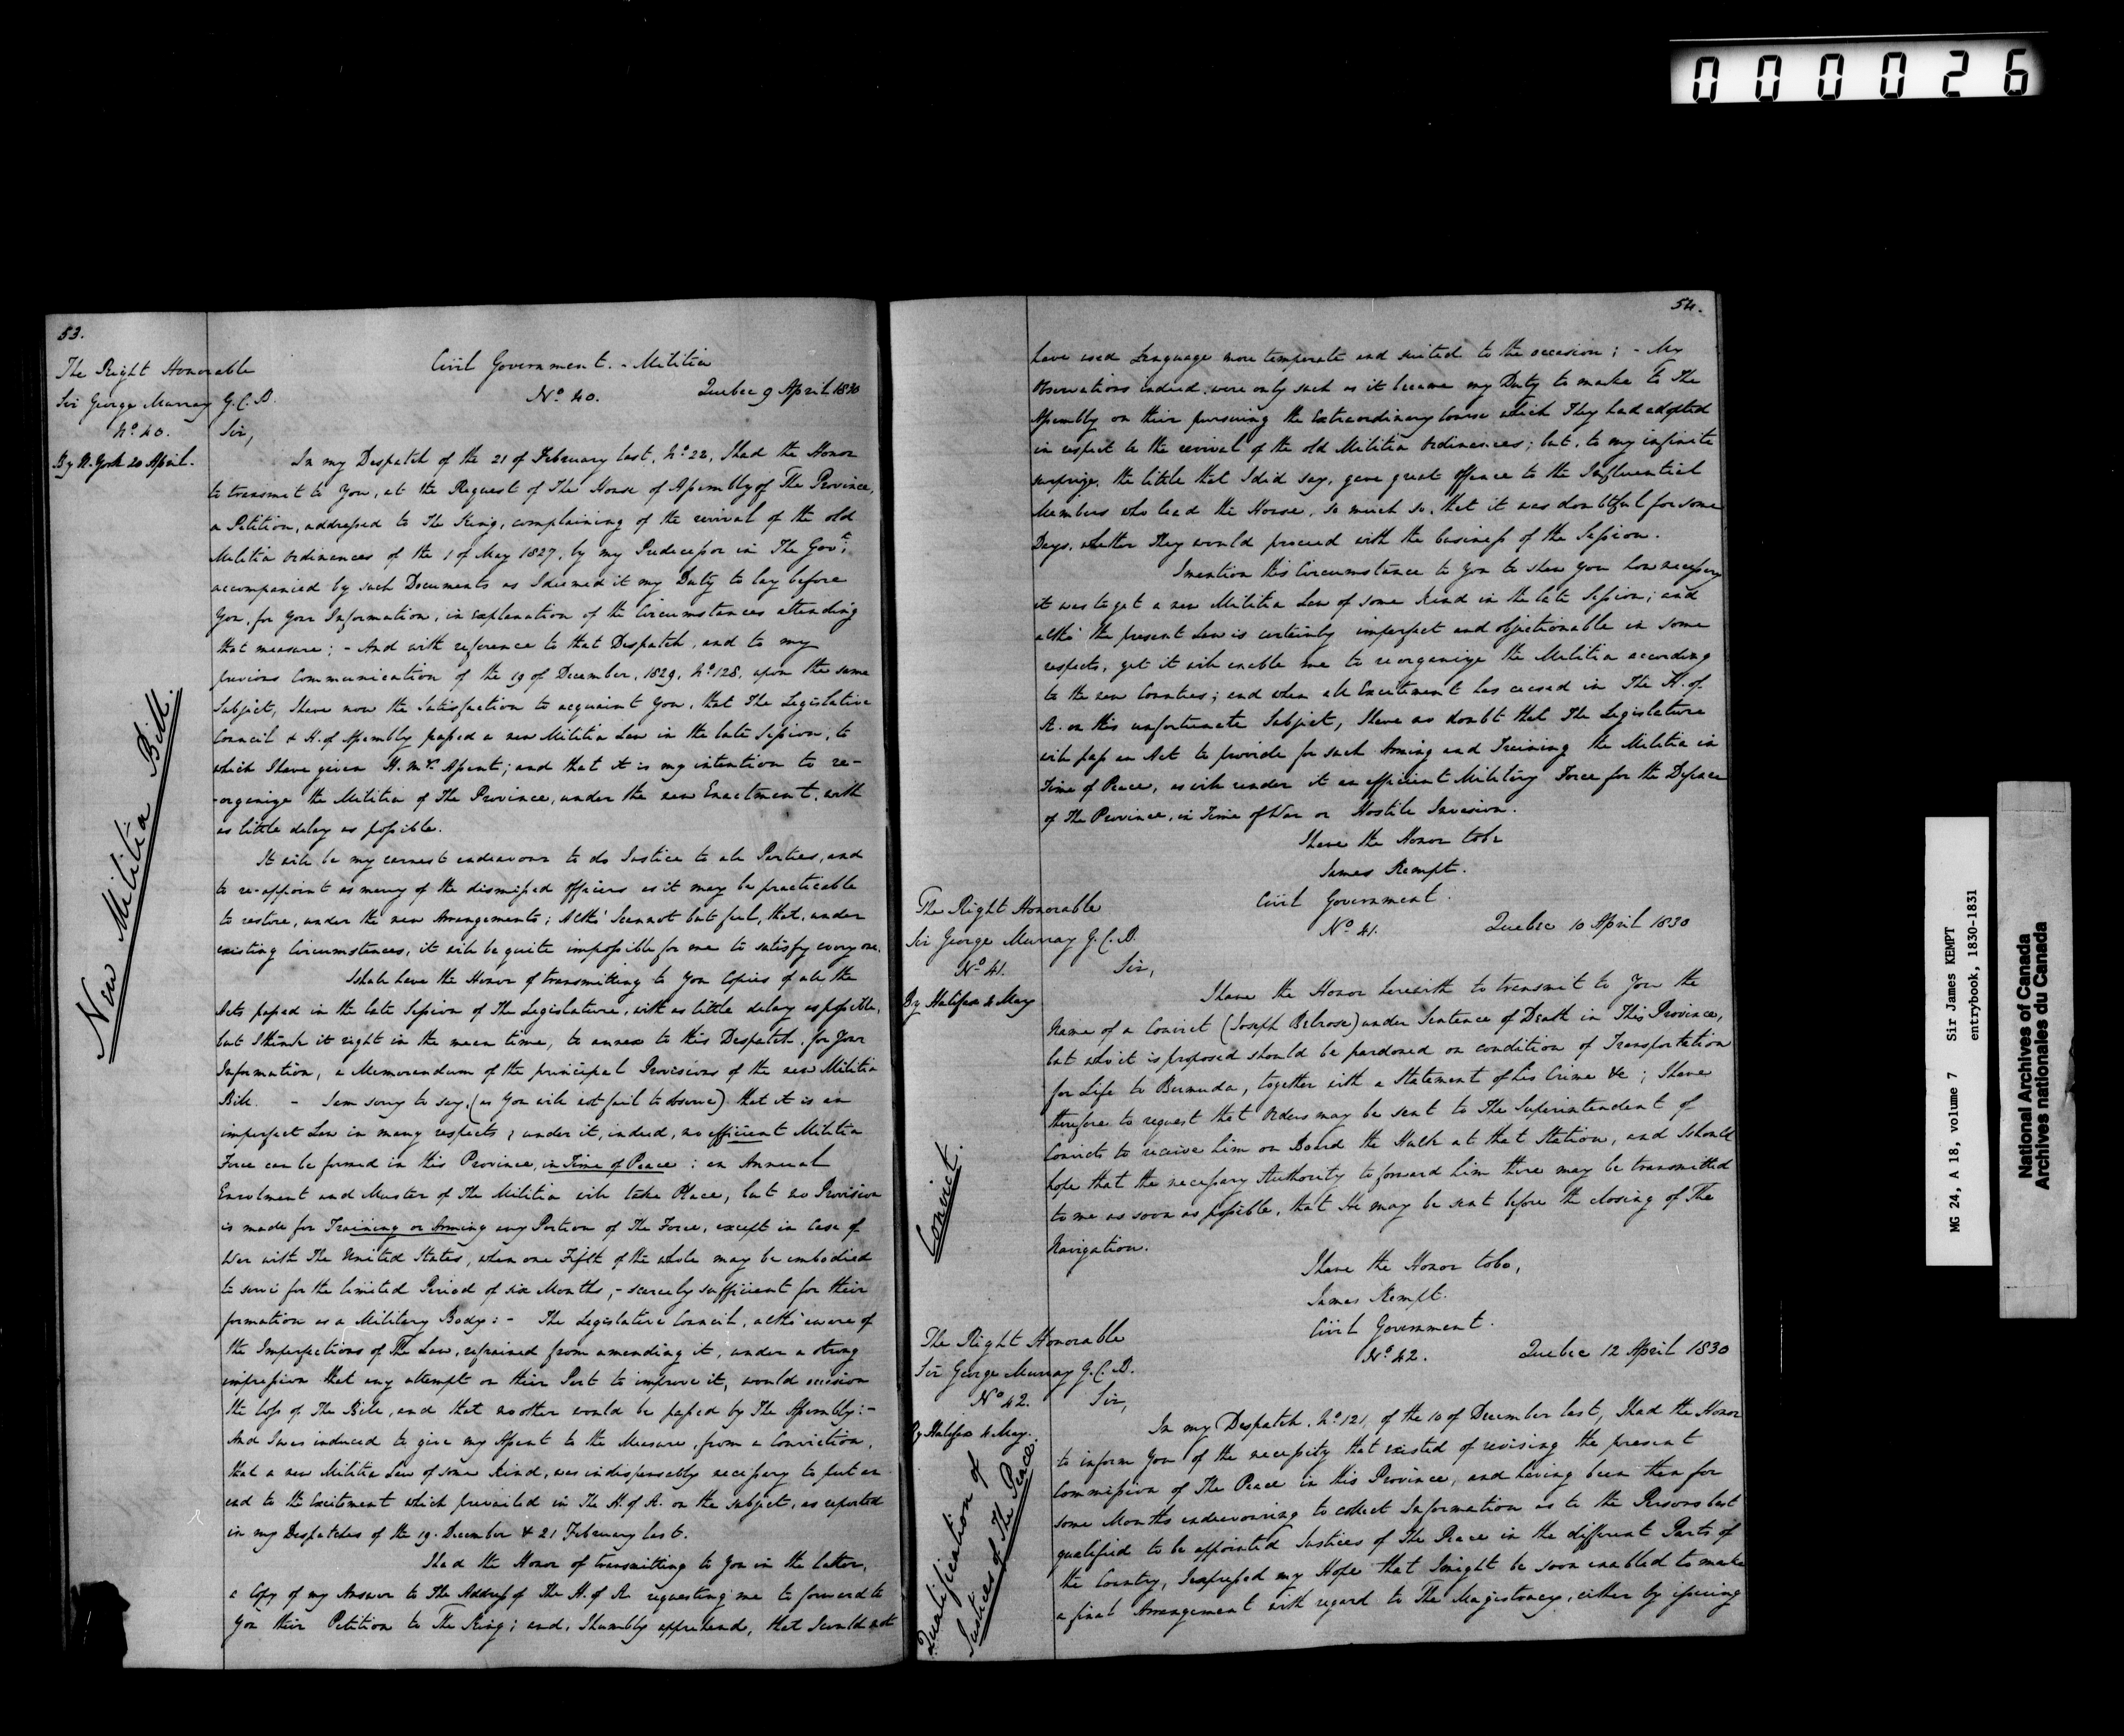 000026
53.
The Right Honorable
Sir George Murray G.C.B.
No. 40.
By N. York 20 April.
New Militia Bill.
Civil Government. - Militia
No. 40. Quebec 9 April 1830
Sir,
In my Despatch of the 21 of February last, No. 22, I had the Honor
to transmit to You, at the Request of The House of Assembly of The Province,
a Petition, addressed to The King, complaining of the revival of the old
Militia Ordinances of the 1 of May 1827, by my Predecessor in The Govt.,
accompanied by such Documents as I deemed it my Duty to lay before
You, for Your Information, in explanation of the Circumstances attending
that measure; - And with reference to that Despatch, and to my
previous Communication of the 19 of December, 1829, No. 128, upon the same
Subject, I have now the Satisfaction to acquaint You, that The Legislative
Council & H. of Assembly passed a new Militia Law in the late Session, to
which I have given H. M's. Assent; and that it is my intention to re-
-organize the Militia of The Province, under the new Enactment, with
as little delay as possible.
It will be my earnest endeavour to do Justice to all Parties, and
to re-appoint as many of the dismissed officers as it may be practicable
to restore, under the new Arrangements; Altho' I cannot but feel, that, under
existing Circumstances, it will be quite impossible for me to satisfy every one.
I shall have the Honor of transmitting to You Copies of all the
Acts passed in the late Session of The Legislature, with as little delay as possible,
but I think it right in the mean time, to annex to this Despatch, for Your
Information, a Memorandum of the principal Provisions of the new Militia
Bill. - I am sorry to say, (as You will not fail to observe) that it is an
imperfect Law in many respects; under it, indeed, no efficient Militia
Force can be formed in this Province, in Time of Peace: an Annual
Enrolment and Muster of The Militia will take Place, but no Provision
is made for Training or Arming any Portion of The Force, except in Case of
War with The United States, when one Fifth of the whole may be embodied
to serve for the limited Period of six Months, - scarcely sufficient for their
formation as a Military Body: - The Legislative Council, altho' aware of
the Imperfections of The Law, refrained from amending it, under a strong
impression that any attempt on their Part to improve it, would occasion
the loss of The Bill, and that no other would be passed by The Assembly: -
And I was induced to give my Assent to the Measure, from a Conviction,
that a new Militia Law of some kind, was indispensably necessary to put an
end to the Excitement which prevailed in The H. of A. on the subject, as reported
in my Despatches of the 19. December & 21 February last.
I had the Honor of transmitting to You in the latter,
a Copy of my Answer to The Address of The H. of A. requesting me to forward to
You their Petition to The King; and, I humbly apprehend, that I could not
54.
have used Language more temperate and suited to the occasion; - My
Observations indeed were only such as it became my Duty to make to The
Assembly on their pursuing the extraordinary Course which They had adopted
in respect to the revival of the old Militia Ordinances; but, to my infinite
surprize, the little that I did say, gave great offence to the Influential
Members who lead the House, so much so, that it was doubtful for some
Days, whether They would proceed with the business of the Session.
I mention this Circumstance to You to shew you how necessary
it was to get a new Militia Law of some kind in the late Session; and
altho' the present Law is certainly imperfect and objectionable in some
respects, yet it will enable me to reorganize the Militia according
to the new Counties; and when all Excitement has ceased in The H. of
A. on this unfortunate Subject, I have no doubt that The Legislature
will pass an Act to provide for such Arming and Training the Militia in
Time of Peace, as will render it an efficient Military Force for the Defence
of The Province, in Time of War or Hostile Invasion.
I have the Honor to be
James Kempt.
The Right Honorable
Sir George Murray G.C.B.
No. 41.
By Halifax 4 May
Convict.
Civil Government.
No. 41. Quebec 10 April 1830
Sir,
I have the Honor herewith to transmit to You the
Name of a Convict (Joseph Belrose) under Sentence of Death in This Province,
but who it is proposed should be pardoned on condition of Transportation
for Life to Bermuda, together with a Statement of his Crime &c; I have
therefore to request that Orders may be sent to The Superintendent of
Convicts to receive him on Board the Hulk at that Station, and I should
hope that the necessary Authority to forward him there may be transmitted
to me as soon as possible, that He may be sent before the closing of The
Navigation.
I have the Honor to be,
James Kempt.
The Right Honorable
Sir George Murray G.C.B.
No. 42.
By Halifax 4 May.
Qualification of
Justices of The Peace.
Civil Government.
No. 42. Quebec 12 April 1830
Sir,
In my Despatch, No. 121, of the 10 of December last, I had the Honor
to inform You of the necessity that existed of revising the present
Commission of The Peace in this Province, and having been then for
some Months endeavouring to collect Information as to the Persons best
qualified to be appointed Justices of The Peace in the different Parts of
the Country, I expressed my Hope that I might be soon enabled to make
a final Arrangement with regard to The Magistracy, either by issuing
MG 24, A 18, volume 7 Sir James KEMPT
entrybook, 1830-1831
National Archives of Canada
Archives nationales du Canada